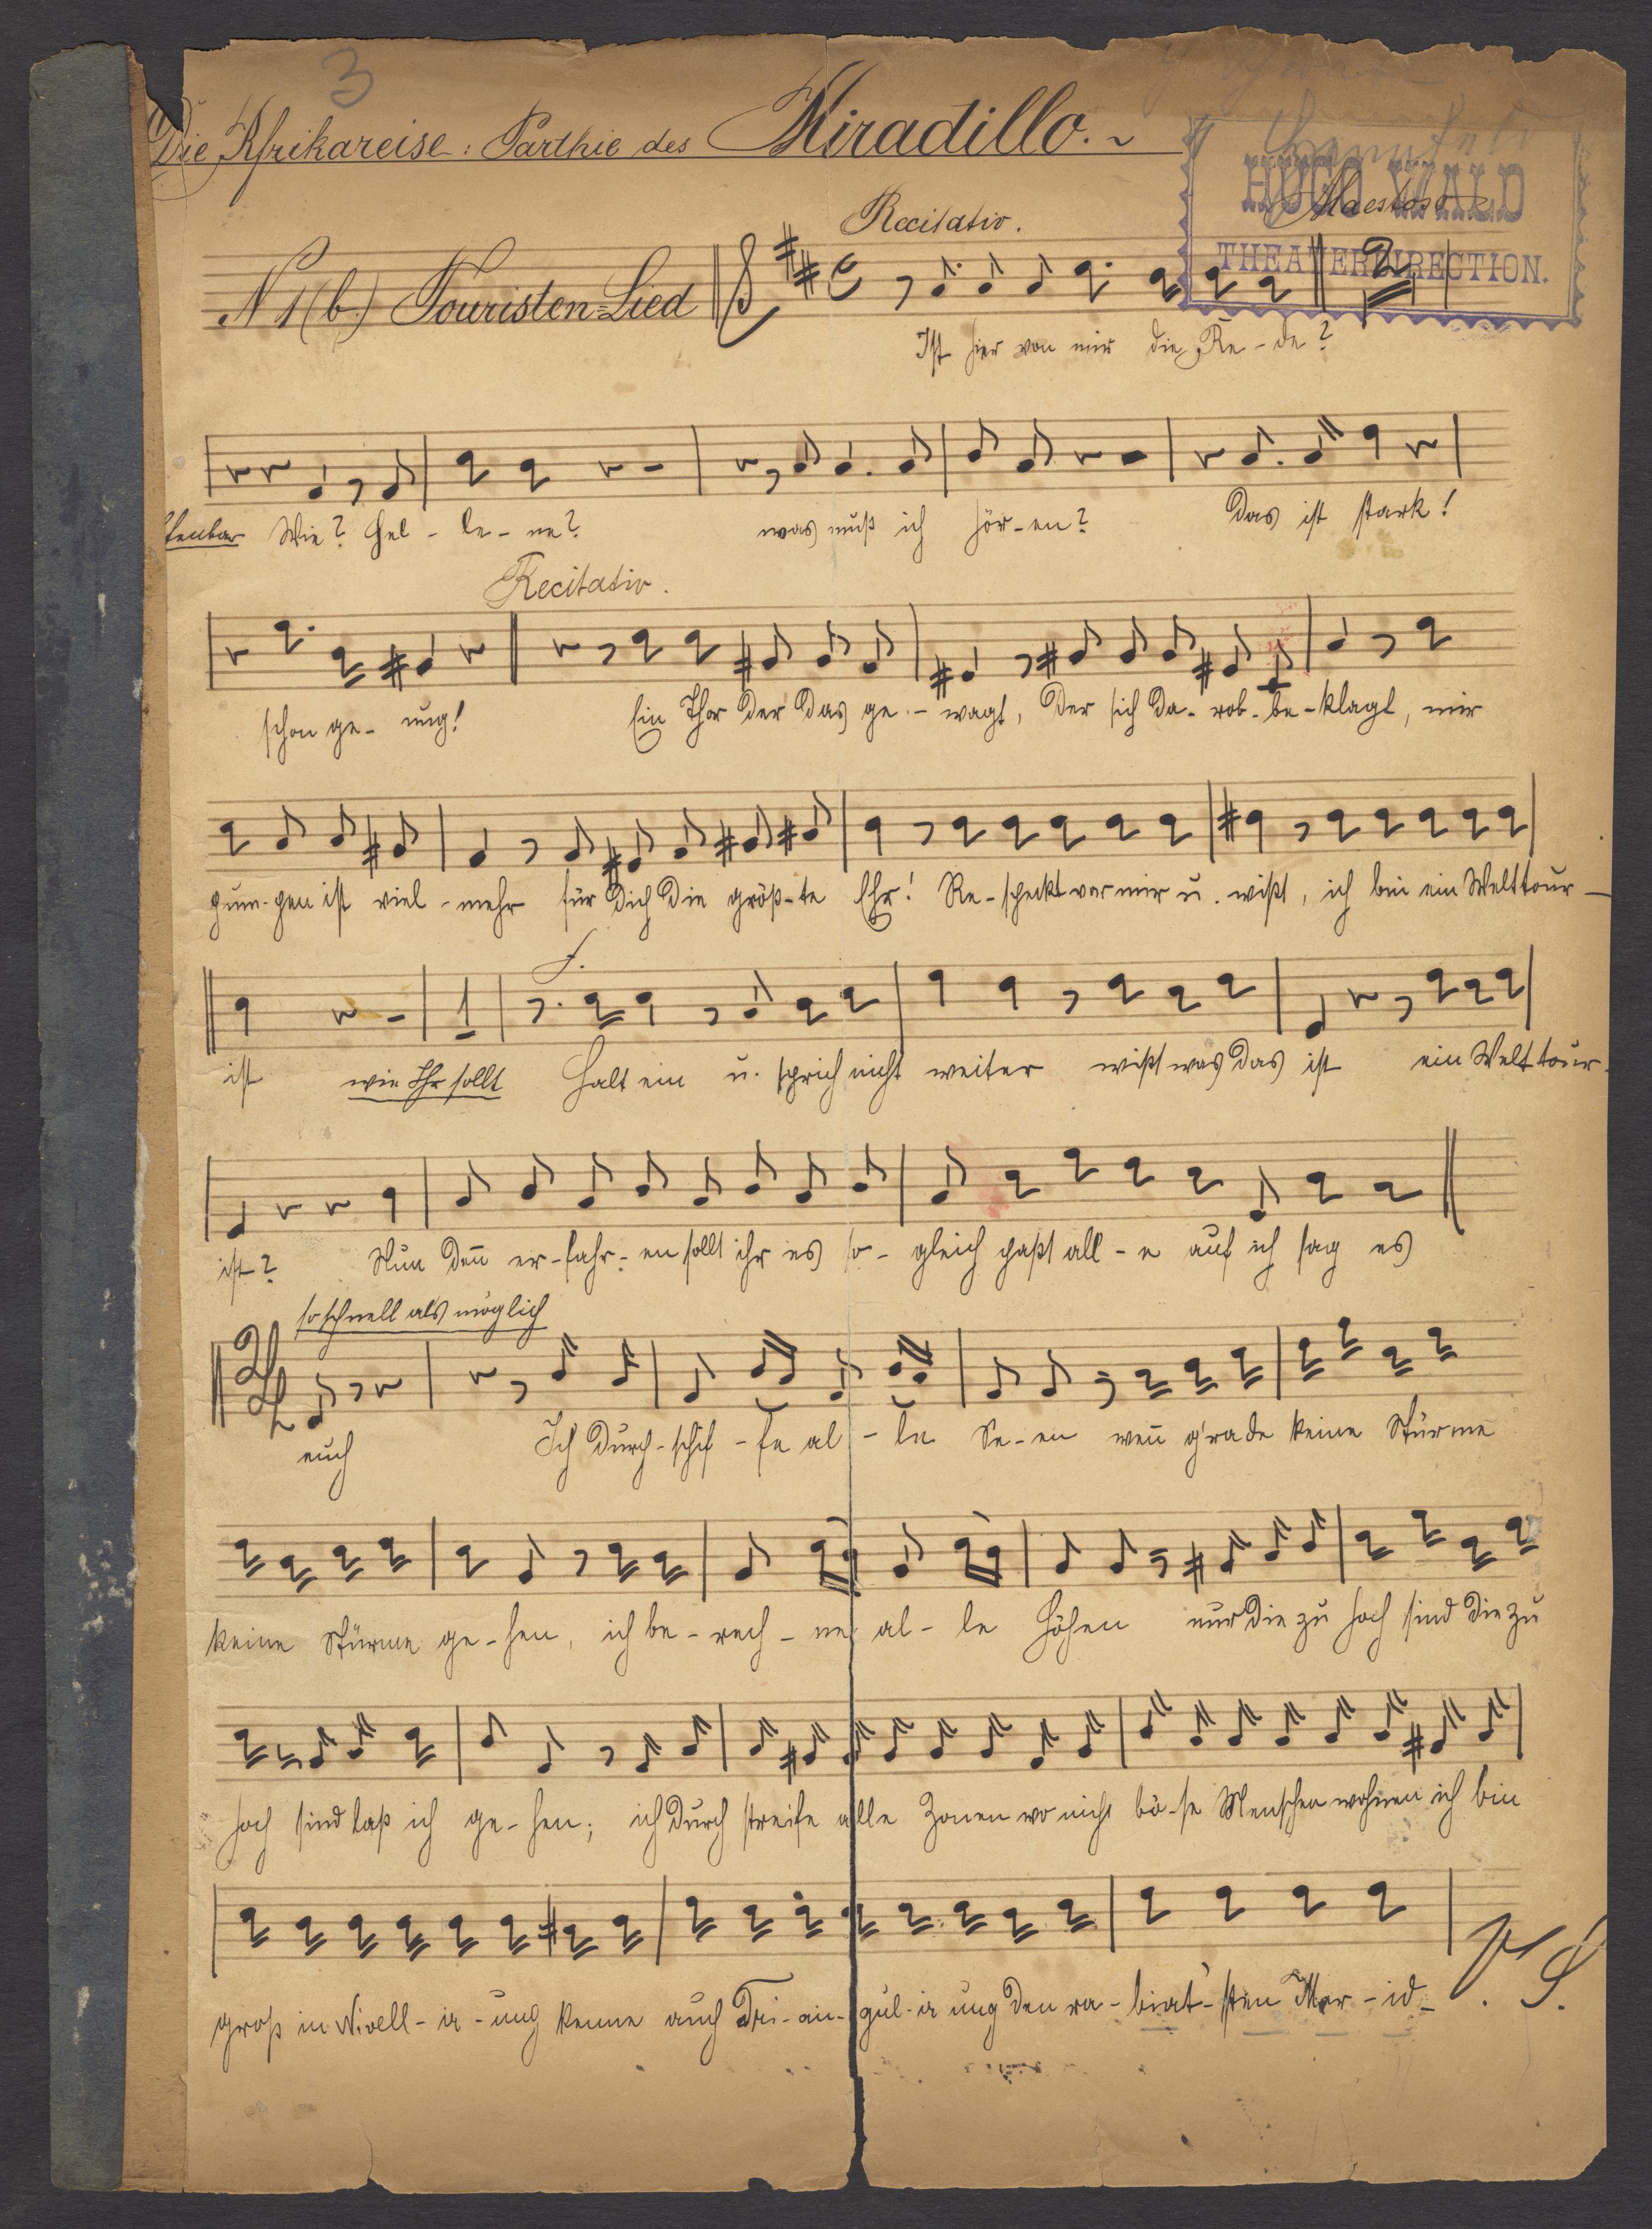 3
Die Afrikareise: Parthie des Miradillo.
HUGO WALD
THEATERDIRECTION.
Recitativ. Maestoso
N 1(b.) Touristen-Lied
Ist hier von mir die Re-de?
Wie? Hel-le-ne? was muß ich hör-en? Das ist stark!
Recitativ.
schon ge-nug! Ein Thor der das ge-wagt, der sich da-rob-be-klagt, mir
ist viel-mehr für dich die größ-te Ehr! Re-spekt vor mir u. wißt, ich bin ein Welttour-
f.
ist wie Ihr sollt Halt ein u. sprich nicht weiter wißt was das ist ein Welttour-
ist? Nun den̄ er-fahr-en sollt ihr es so-gleich paßt all-e auf ich sag es
so schnell als möglich
euch Ich durch-schif-fe al-le Se-en wen̄ g'rade keine Stürme
keine Stürme ge-hen, ich be-rech-ne al-le Höhen nur die zu hoch sind die zu
hoch sind laß ich ge-hen; ich durch streife alle Zonen wo nicht bö-se Menschen wohnen ich bin
groß in Nivell-ir-ung kenne auch Tri-an-gul-ir ung den ra-biat'-sten Mer-id-
V. S.